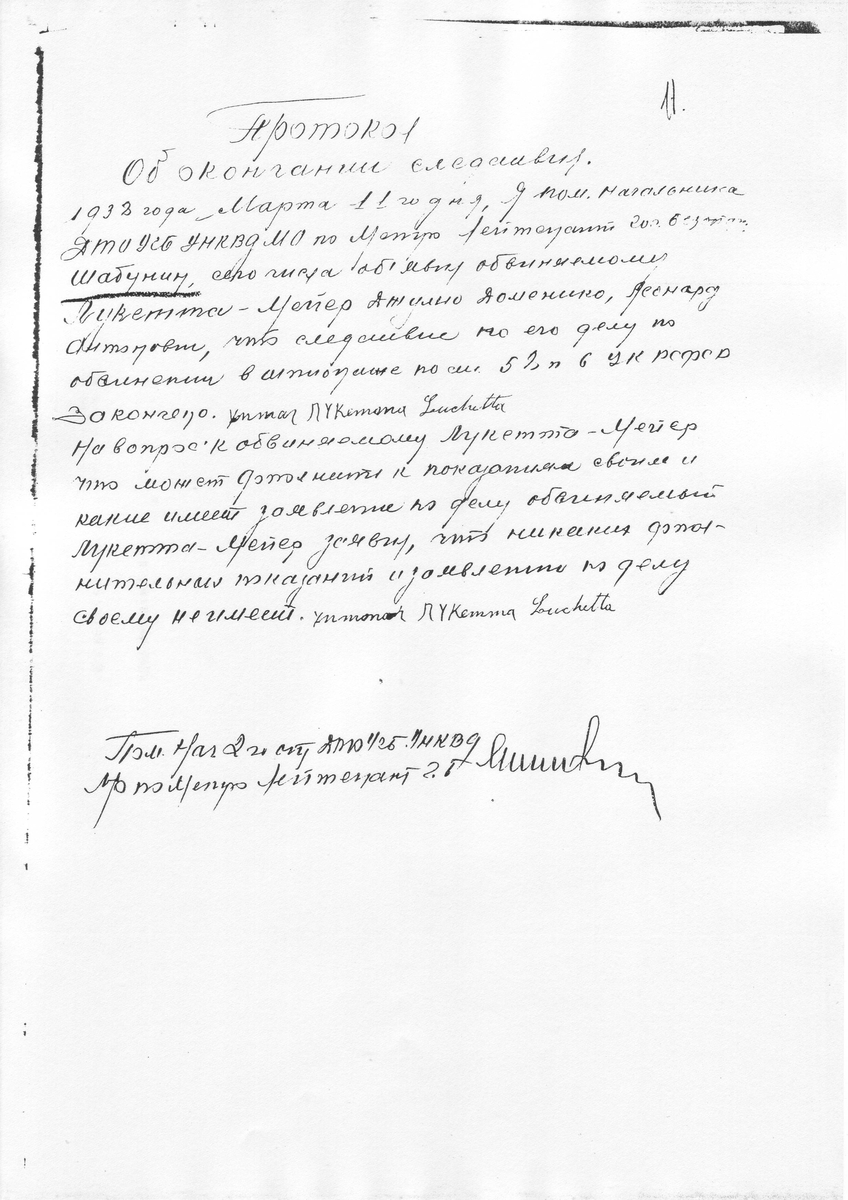 11.
Протокол
Об окончании следствия.
1938 года Марта 11го дня, Я пом. начальника
ДТО УГБ УНКВД МО по Метро Лейтенант гос. безопасн
Шабунин, сего числа об'явил обвиняемому
Лукетта-Мейер Джулио Доменико, Леонард
Антонович, что следствие по его делу по
обвинении в шпионаже по ст. 58 п 6 УК РСФСР
Закончено. читал ЛУКетта Luchetta
На вопрос к обвиняемому Лукетта-Мейер
что может дополнить к показаниям своим и
какие имеет заявления по делу обвиняемый
Лукетта-Мейер заявил, что никаких допол-
нительных показаний и заявлению по делу
своему не имеет. читал ЛУКетта Luchetta
Пом. Нач 2го отд ДТО УГБ. УНКВД
МО по Метро Лейтенант Г.Б